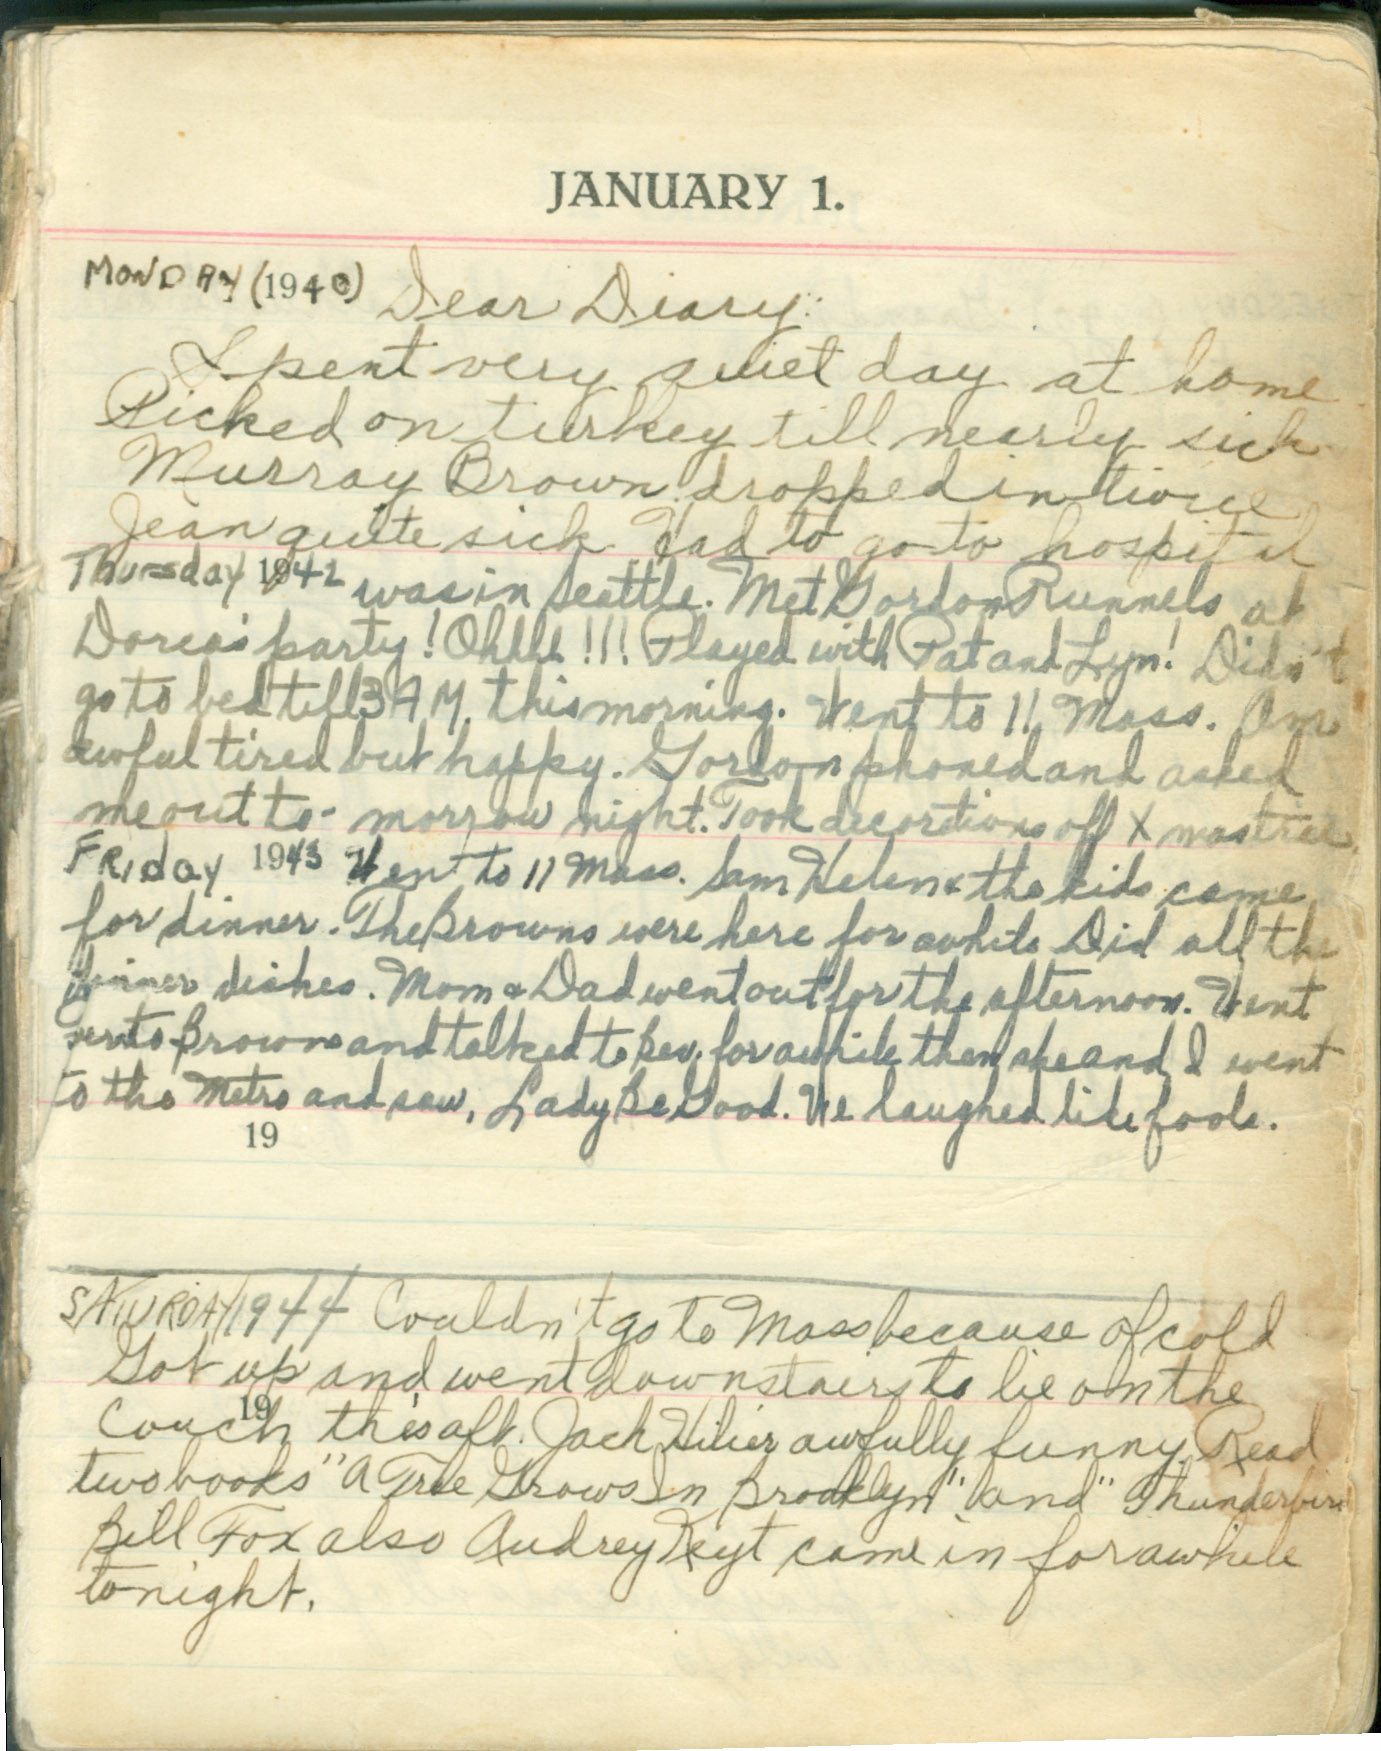 JANUARY 1.
MONDAY (1940) Dear Diary:
Spent very quiet day at home
Picked on turkey till nearly sick
Murray Brown dropped in twice
Jean quite sick Had to go to hospital
Thursday 1942 was in Seattle. Met Gordon Runnels at
Dorca's party! Ohhhh!!! Played with Pat and Lyn! Didn't
go to bed till 3 A M. this morning. Went to 11 Mass. Am
awful tired but happy. Gordon phoned and asked
me out to-morrow night. Took decorations off Xmas tree.
FRiday 1943 Went to 11 Mass. Sam Helen & the kids came
for dinner. The Browns were here for awhile Did all the
dinner dishes. Mom & Dad went out for the afternoon. Went
over to Browns and talked to Bev. for awhile then she and I went
to the Metro and saw, Lady Be Good. We laughed like fools.
19
SATURDAY 1944 Couldn't go to Mass because of cold
Got up and went downstairs to lie on the
19
couch this aft. Jack Hilier awfully funny. Read
two books "A Tree Grows In Brooklyn" and "Thunderbird
Bill Fox also Audrey Keyt came in for awhile
tonight.